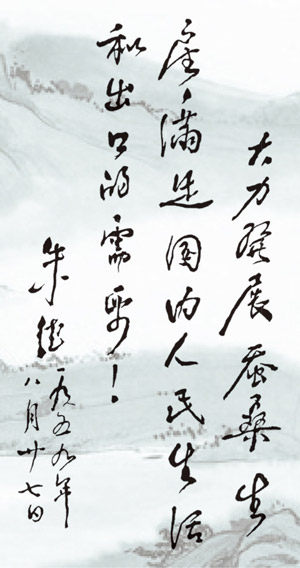 大力發展蚕桑生
産，滿足國内人民生活
和出口的需要！
朱德
一九五九年
八月廿七日